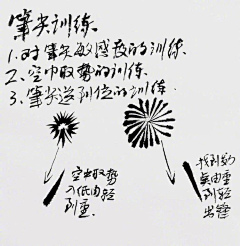 笔尖训练
1.对笔尖敏感度的训练
2.空中取势的训练
3.笔尖送到位的训练
空中取势
入纸由轻
到重.
找到动
点由重
到轻
出锋